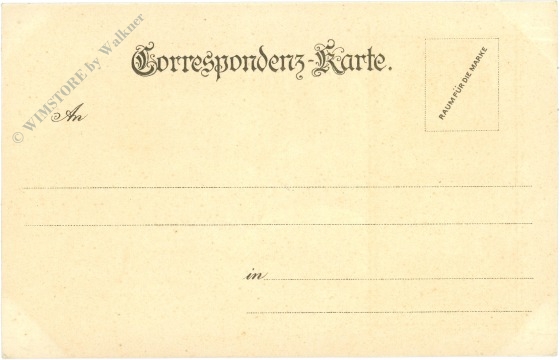 © WIMSTORE by Walkner
Correspondenz-Karte.
RAUM FÜR DIE MARKE
An
in